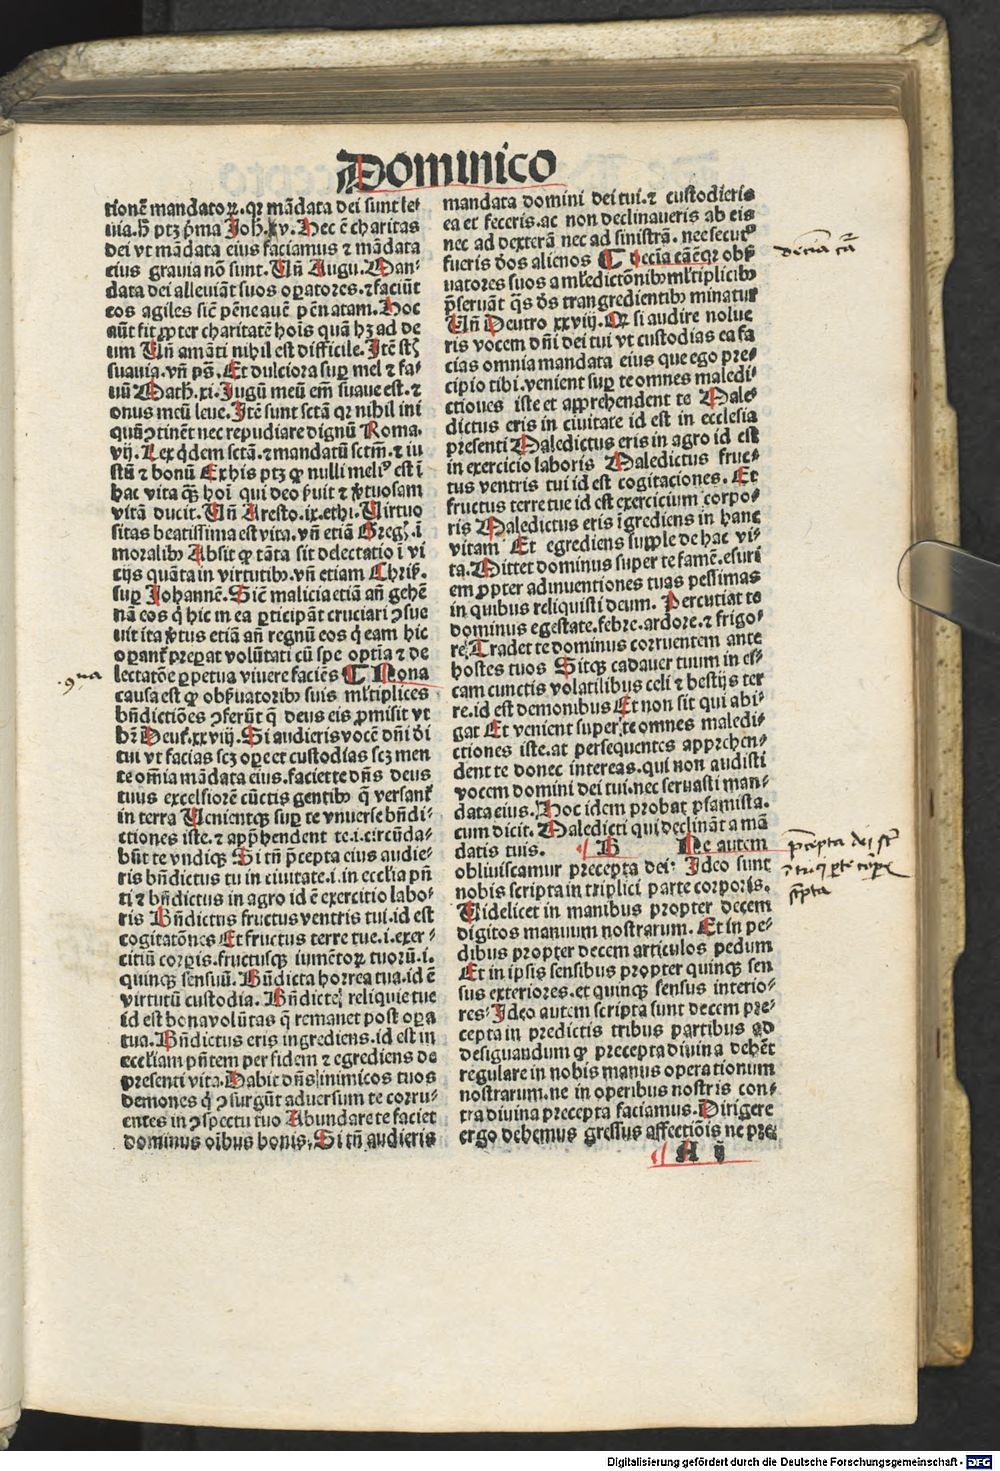 Dominico
tionē mandatoꝝ. qꝛ mādata dei sunt le⸗
uia. h̄ ptꝫ p̄ma Joh. xv. Hec ē charitas
dei vt mādata eius faciamus ⁊ mādata
eius grauia nō sunt. Vn̄ Augu. Man⸗
data dei alleuiāt suos oꝑatores. ⁊ faciūt
eos agiles sic̄ pēne auē pēnatam. Hoc
aūt fit ꝓpter charitatē hoīs quā hꝫ ad de
um Vn̄ amāti nihil est difficile. Itē st̄
suauia. vn̄ ps̄. Et dulciora suꝑ mel ⁊ fa⸗
uū Math. xi. Jugū meū em̄ suaue est. ⁊
onus meū leue. Itē sunt sctā qꝛ nihil ini
quū ꝯtinēt nec repudiare dignū Roma.
vij. Lex q̇dem sctā. ⁊ mandatū sctm̄. ⁊ iu
stū ⁊ bonū Ex his ptꝫ ꝙ nulli meliꝰ est ī
hac vita qꝫ hoī qui deo ẜuit ⁊ ꝟtuosam
vitā ducit. Vn̄ Aresto. ix. ethi. Virtuo
sitas beatissima est vita. vn̄ etiā Greg. ī
moralibꝰ Absit ꝙ tāta sit delectatio ī vi
cijs quāta in virtutibꝰ. vn̄ etiam Chris̄.
suꝑ Johannē. Sic̄ malicia etiā an̄ gehē
nā eos q̇ hic in ea ꝑticipāt cruciari ꝯsue
uit ita ꝟtus etiā an̄ regnū eos q̇ eam hic
oꝑant̄ preꝑat volūtati cū spe optia ⁊ de
lectatōe ꝑpetua viuere faciēs ¶ Nona
causa est ꝙ obẜuatoribꝰ suis ml̄tiplices
bn̄dictiōes ꝯferūt q̄ deus eis ꝓmisit vt
hr̄ Deut̄. xxviij. Si audieris vocē dn̄i d̄i
tui vt facias scꝫ oꝑe et custodias scꝫ men
te om̄ia mādata eius. faciet te dn̄s deus
tuus excelsiorē cūctis gentibꝰ q̄ versant̄
in terra Uenientqꝫ suꝑ te vnuerse bn̄di⸗
ctiones iste. ⁊ app̄hendent te. i. circūda⸗
būt te vndiqꝫ Si tn̄ p̄cepta eius audie⸗
ris bn̄dictus tu in ciuitate. i. in ecclia pn̄
ti ⁊ bn̄dictus in agro id ē exercitio labo⸗
ris Bn̄dictus fructus ventris tui. id est
cogitatōnes Et fructus terre tue. i. exer⸗
citiū corꝑis. fructusqꝫ iumētoꝝ tuoꝝ. i.
quinqꝫ sensuū. Bn̄dicta horrea tua. id ē
virtutū custodia. Bn̄dicte reliquie tue
id est bona volūtas q̄ remanet post oꝑa
tua. Bn̄dictus eris ingrediens. id est in
eccl̄iam pn̄tem per fidem ⁊ egrediens de
presenti vita. Dabit dn̄s inimicos tuos
demones q̇ ꝯsurgūt aduersum te corru⸗
entes in ꝯspectu tuo Abundare te faciet
dominus oībus bonis. Si tn̄ audieris
.9na
mandata domini dei tui. ⁊ custodieris
ea et feceris. ac non declinaueris ab eis
nec ad dexterā nec ad sinistrā. nec secutꝰ
fueris dos alienos ¶ Decīa cā ē qꝛ obẜ
uatores suos a ml̄edictōnibꝰ ml̄tiplicibꝰ
p̄seruāt q̄s d̄s trāngredientibꝰ minatur
Vn̄ Deutro xxviij. Qꝛ si audire nolue
ris vocem dn̄i dei tui vt custodias ea fa
cias omnia mandata eius que ego pre⸗
cipio tibi. venient suꝑ te omnes maledi⸗
ctiones iste et apprehendent te Male⸗
dictus eris in ciuitate id est in ecclesia
presenti Maledictus eris in agro id est
in exercicio laboris Maledictus fruc⸗
tus ventris tui id est cogitaciones. Et
fructus terre tue id est exercicium corpo⸗
ris Maledictus eris īgrediens in hanc
vitam Et egrediens supple de hac vi⸗
ta. Mittet dominus super te famē. esuri
em ꝓpter adinuentiones tuas pessimas
in quibus reliquisti deum. Percutiat te
dominus egestate. febre. ardore. ⁊ frigo⸗
re. Tradet te dominus corruentem ante
hostes tuos Sitqꝫ cadauer tuum in es⸗
cam cunctis volatilibus celi ⁊ bestijs ter
re. id est demonibus Et non sit qui abi⸗
gat Et venient super te omnes maledi⸗
ctiones iste. at persequentes apprehen⸗
dent te donec intereas. qui non audisti
vocem domini dei tui. nec seruasti man⸗
data eius. Hoc idem probat psamista.
cum dicit. Maledicti qui declināt a mā
datis tuis. ¶ B Ne autem
obliuiscamur precepta dei: Ideo sunt
nobis scripta in triplici parte corporis.
Uidelicet in manibus propter decem
digitos manuum nostrarum. Et in pe⸗
dibus propter decem articulos pedum
Et in ipsis sensibus propter quinqꝫ sen
sus exteriores. et quinqꝫ sensus interio⸗
res: Ideo autem scripta sunt decem pre⸗
cepta in predictis tribus partibus ad
designandum ꝙ precepta diuina debēt
regulare in nobis manus operationum
nostrarum. ne in operibus nostris con⸗
tra diuina precepta faciamus. Dirigere
ergo debemus gressus affectiōis ne pre⸗
A ij
decīa cā
p̄cepta dei st̄
sc̄pta
Digitalisierung gefördert durch die Deutsche Forschungsgemeinschaft - DFG